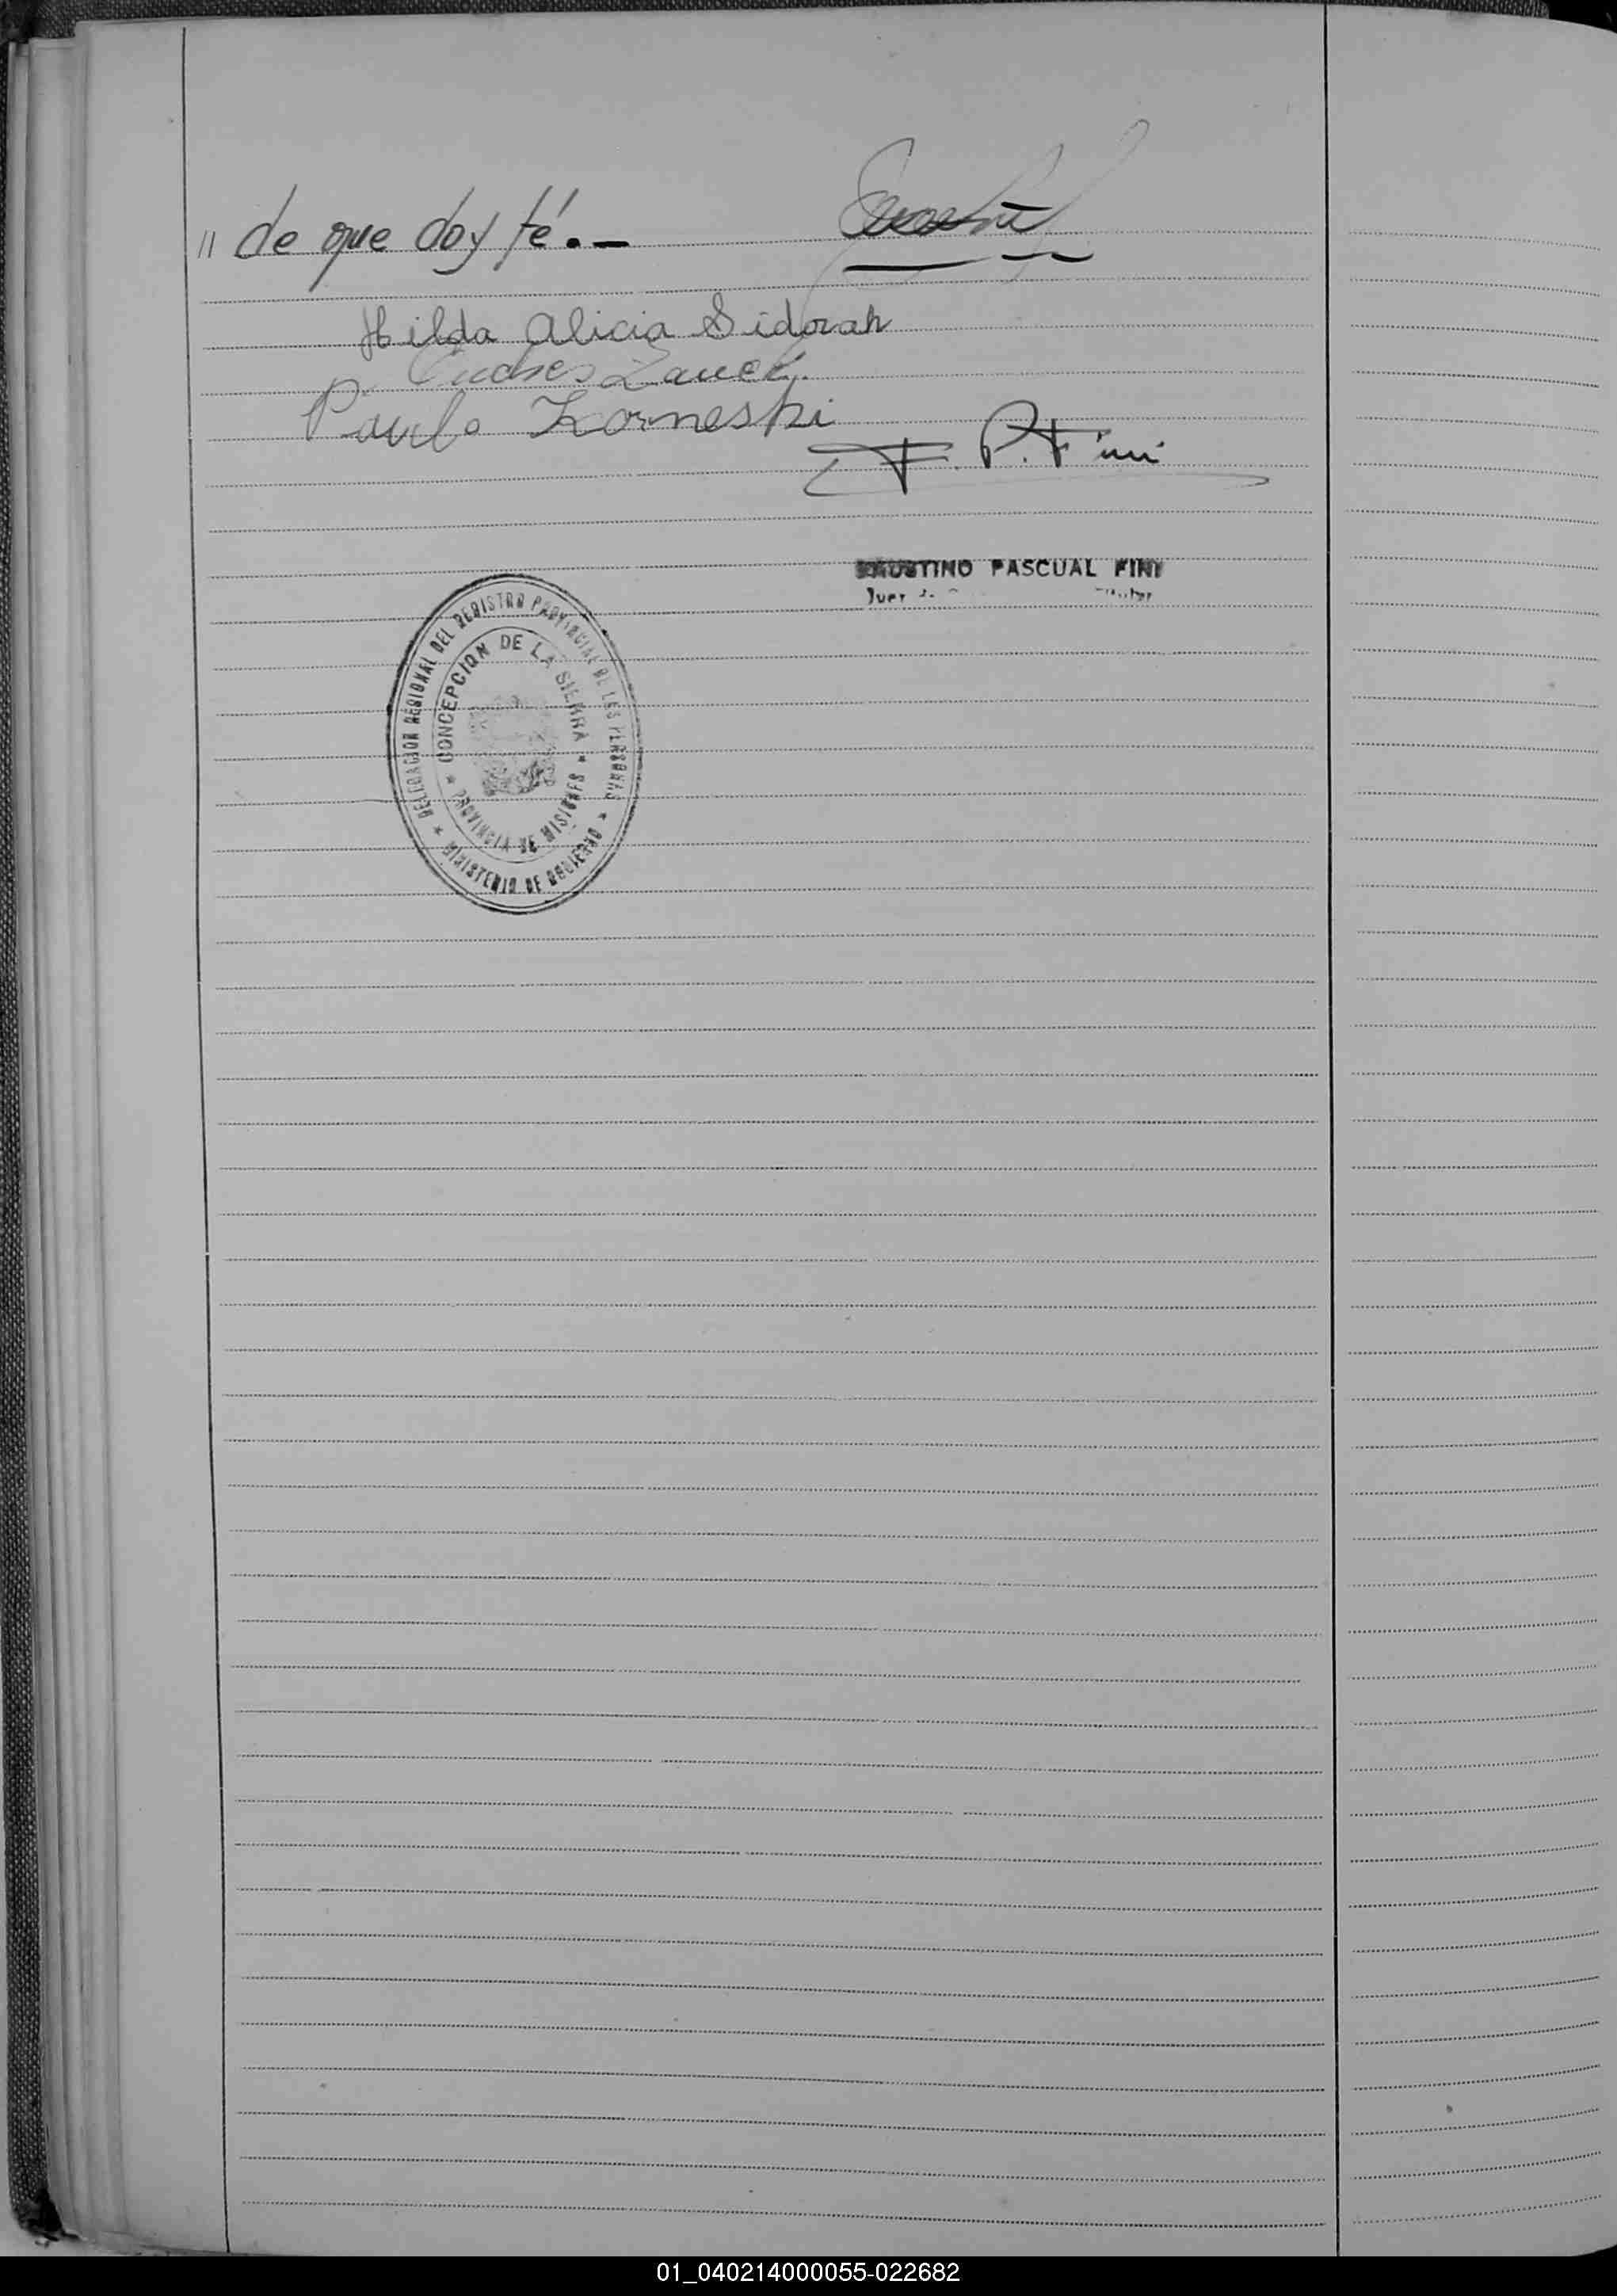 " de que doy fé.-
Hilda Alicia Sidorak
Zauek
Paulo Korneski
F. P. Fini
FAUSTINO PASCUAL FINI
Juez
DELEGACION REGIONAL DEL REGISTRO PROVINCIAL DE LES PERSONAS
* MINISTERIO DE GOBIERNO *
CONCEPCION DE LA SIERRA
* PROVINCIA DE MISIONES *
01_040214000055-022682